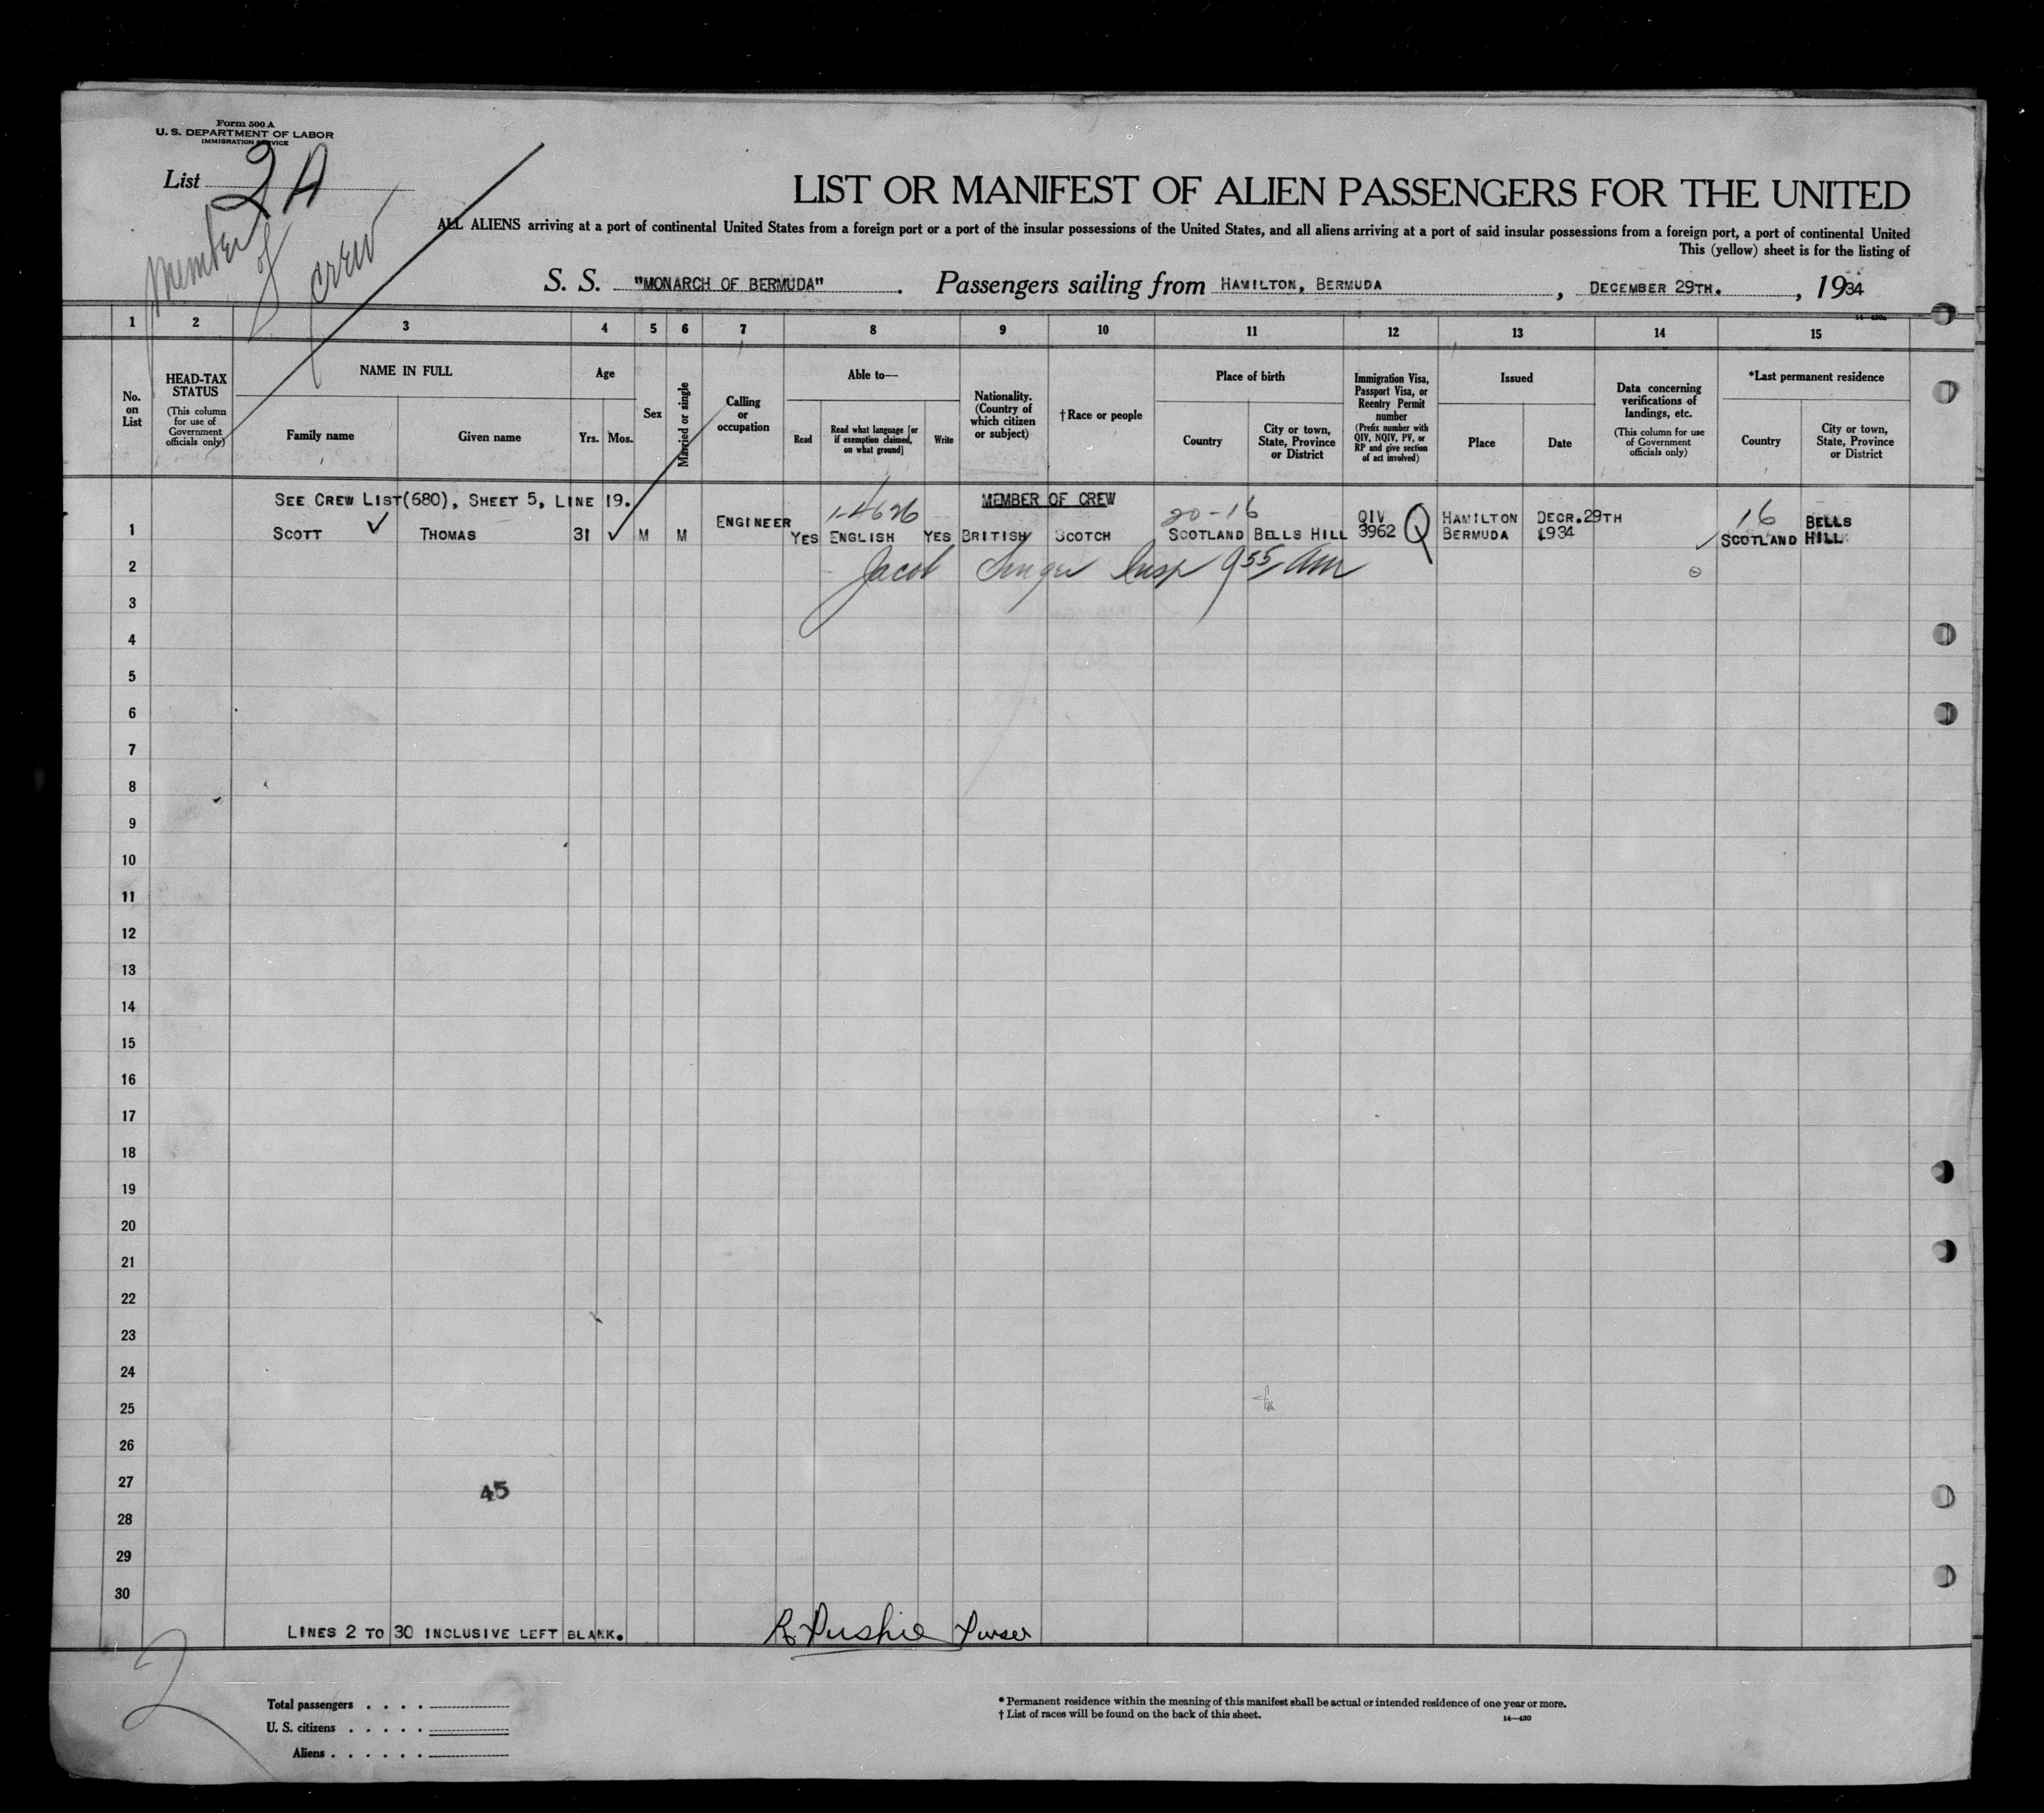 Form 500 A
U. S. DEPARTMENT OF LABOR
IMMIGRATION SERVICE
List 2A
member of crew
LIST OR MANIFEST OF ALIEN PASSENGERS FOR THE UNITED
ALL ALIENS arriving at a port of continental United States from a foreign port or a port of the insular possessions of the United States, and all aliens arriving at a port of said insular possessions from a foreign port, a port of continental United
This (yellow) sheet is for the listing of
S. S. "MONARCH OF BERMUDA". Passengers sailing from HAMILTON, BERMUDA, DECEMBER 29TH., 1934
1 2 3 4 5 6 7 8 9 10 11 12 13 14 15
No. on List
HEAD-TAX STATUS
(This column for use of Government officials only)
NAME IN FULL
Family name
Given name
Age
Yrs.
Mos.
Sex
Married or single
Calling or occupation
Able to—
Read
Read what language [or if exemption claimed, on what ground]
Write
Nationality. (Country of which citizen or subject)
†Race or people
Place of birth
Country
City or town, State, Province or District
Immigration Visa, Passport Visa, or Reentry Permit number
(Prefix number with QIV, NQIV, PV, or RP and give section of act involved)
Issued
Place
Date
Data concerning verifications of landings, etc.
(This column for use of Government officials only)
*Last permanent residence
Country
City or town, State, Province or District
SEE CREW LIST(680), SHEET 5, LINE 19. 1-4626 MEMBER OF CREW 20-16 16
1 SCOTT THOMAS 31 M M ENGINEER YES ENGLISH YES BRITISH SCOTCH SCOTLAND BELLS HILL QIV 3962 Q HAMILTON BERMUDA DECR.29TH 1934 SCOTLAND BELLS HILL
2 Jacob Singer Insp 9 55/ am
3
4
5
6
7
8
9
10
11
12
13
14
15
16
17
18
19
20
21
22
23
24
25
26
27 45
28
29
30
LINES 2 TO 30 INCLUSIVE LEFT BLANK. Purser
2
Total passengers . . . .
U. S. citizens . . . . .
Aliens . . . . . .
* Permanent residence within the meaning of this manifest shall be actual or intended residence of one year or more.
† List of races will be found on the back of this sheet.
14—430